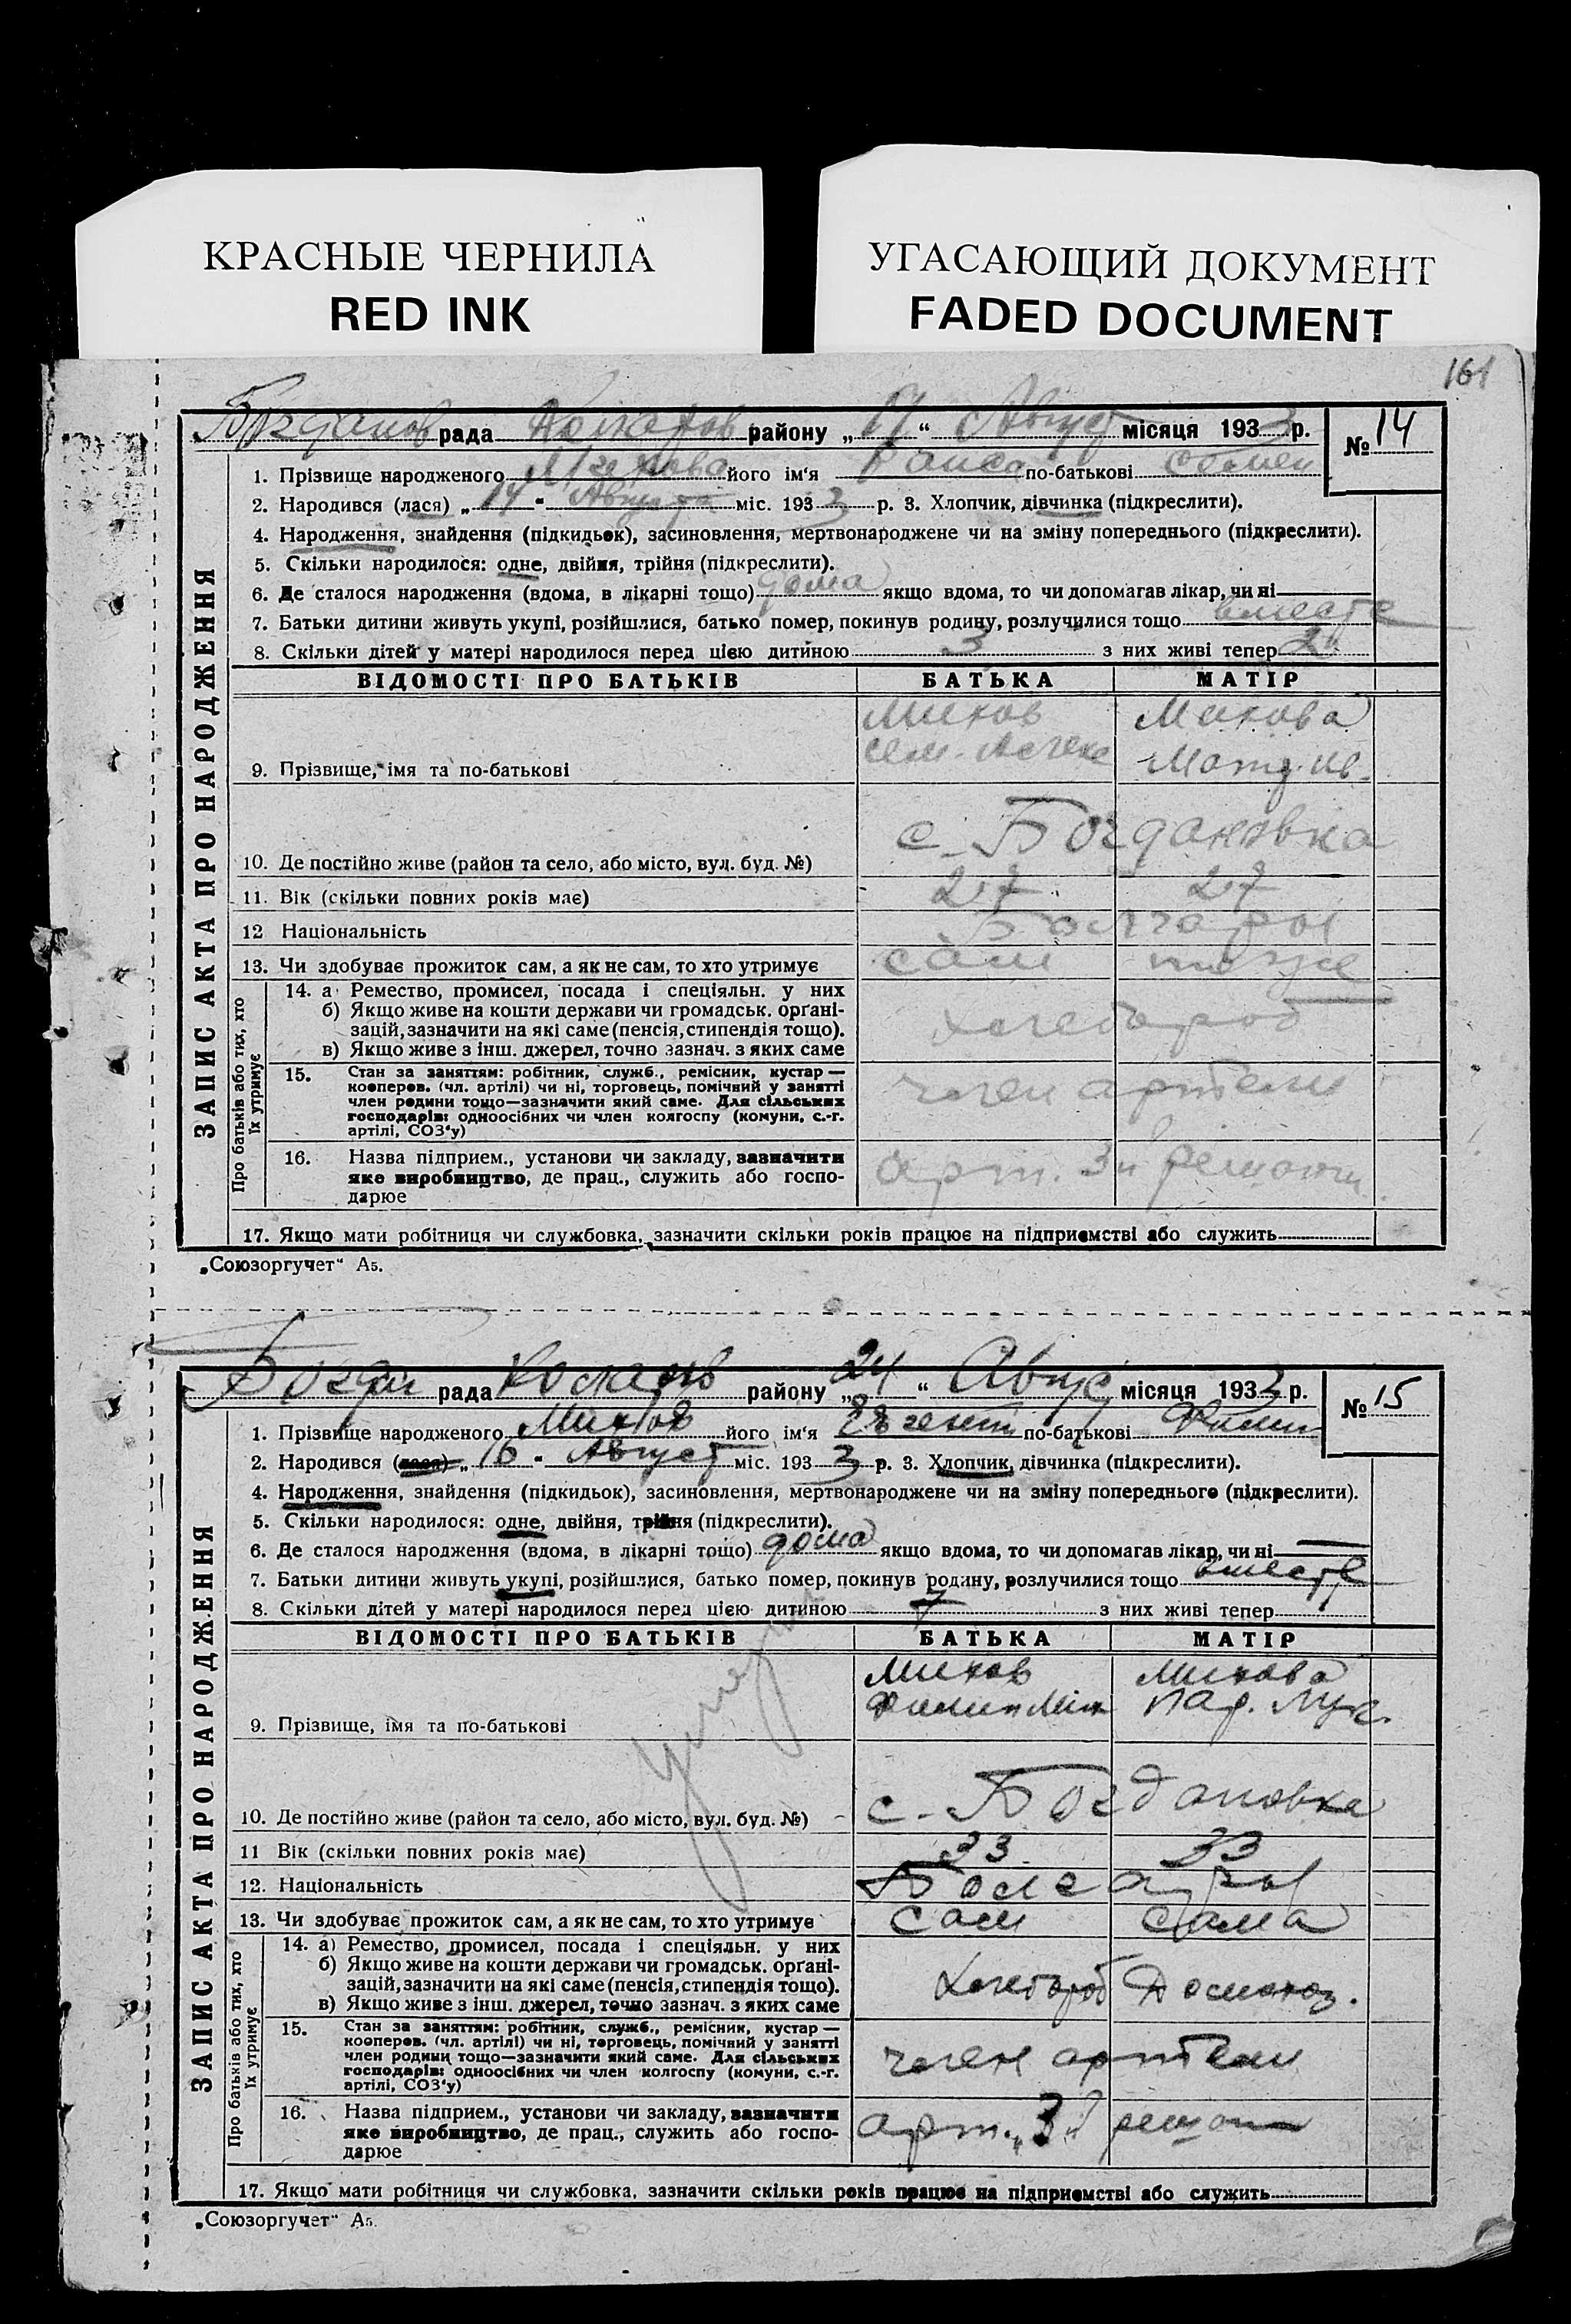 КРАСНЫЕ ЧЕРНИЛА
RED INK
УГАСАЮЩИЙ ДОКУМЕНТ
FADED DOCUMENT
161
Богданов рада Коларов району „ “ Август місяця 1933 р. № 14
1. Прізвище народженого його ім‘я Раиса по-батькові Семен
2. Народився (лася) „ 14 “ Августа міс. 1933 р. 3. Хлопчик, дівчинка (підкреслити).
4. Народження, знайдення (підкидьок), засиновлення, мертвонароджене чи на зміну попереднього (підкреслити).
5. Скільки народилося: одне, двійня, трійня (підкреслити).
6. Де сталося народження (вдома, в лікарні тощо) дома якщо вдома, то чи допомагав лікар, чи ні
7. Батьки дитини живуть укупі, розійшлися, батько помер, покинув родину, розлучилися тощо вместе
8. Скільки дітей у матері народилося перед цією дитиною 3 з них живі тепер 2
ЗАПИС АКТА ПРО НАРОДЖЕННЯ
ВІДОМОСТІ ПРО БАТЬКІВ БАТЬКА МАТІР
Михов Михова
9. Прізвище, імя та по-батькові Сем.
с. Богдановка
10. Де постійно живе (район та село, або місто, вул. буд. №)
11. Вік (скільки повних років має) 27 27
12 Національність Болгары
13. Чи здобуває прожиток сам, а як не сам, то хто утримує сам тоже
Про батьків або тих, хто їх утримує
14. а) Ремество, промисел, посада і спеціяльн. у них
б) Якщо живе на кошти держави чи громадськ. орґані-
зацій, зазначити на які саме (пенсія, стипендія тощо). хлебороб
в) Якщо живе з інш. джерел, точно зазнач. з яких саме
15. Стан за заняттям: робітник, служб., ремісник, кустар —
кооперов. (чл. артілі) чи ні, торговець, помічний у занятті
член родини тощо—зазначити який саме. Для сільських член артели
господарів: одноосібних чи член колгоспу (комуни, с.-г.
артілі, СОЗ‘у)
16. Назва підприем., установи чи закладу, зазначити
яке виробництво, де прац., служить або госпо- арт. 3й решающ.
дарює
17. Якщо мати робітниця чи службовка, зазначити скільки років працює на підприємстві або служить
„Союзоргучет“ А5.
Богдан рада Коларов району „ 24 “ Август місяця 1933 р. № 15
1. Прізвище народженого Михов його ім‘я Евгений по-батькові Филип
2. Народився (лася) „ 16 “ Август міс. 1933 р. 3. Хлопчик, дівчинка (підкреслити).
4. Народження, знайдення (підкидьок), засиновлення, мертвонароджене чи на зміну попереднього (підкреслити).
5. Скільки народилося: одне, двійня, трійня (підкреслити).
6. Де сталося народження (вдома, в лікарні тощо) дома якщо вдома, то чи допомагав лікар, чи ні
7. Батьки дитини живуть укупі, розійшлися, батько помер, покинув родину, розлучилися тощо вместе
8. Скільки дітей у матері народилося перед цією дитиною 7 з них живі тепер
ЗАПИС АКТА ПРО НАРОДЖЕННЯ
ВІДОМОСТІ ПРО БАТЬКІВ БАТЬКА МАТІР
Михов Михова
Филип Мих Пар. Лук.
9. Прізвище, імя та по-батькові
умер
с. Богдановка
10. Де постійно живе (район та село, або місто, вул. буд. №)
11 Вік (скільки повних років має) 33 33
12. Національність Болгары
13. Чи здобуває прожиток сам, а як не сам, то хто утримує сам сама
Про батьків або тих, хто їх утримує
14. а) Ремество, промисел, посада і спеціяльн. у них
б) Якщо живе на кошти держави чи громадськ. орґані-
зацій, зазначити на які саме (пенсія, стипендія тощо). хлебороб Домохоз.
в) Якщо живе з інш. джерел, точно зазнач. з яких саме
15. Стан за заняттям: робітник, служб., ремісник, кустар —
кооперов. (чл. артілі) чи ні, торговець, помічний у занятті
член родини тощо—зазначити який саме. Для сільських член артели
господарів: одноосібних чи член колгоспу (комуни, с.-г.
артілі, СОЗ‘у)
16. Назва підприем., установи чи закладу, зазначити
яке виробництво, де прац., служить або госпо- арт. „3й решающ
дарює
17. Якщо мати робітниця чи службовка, зазначити скільки років працює на підприємстві або служить
„Союзоргучет“ А5.